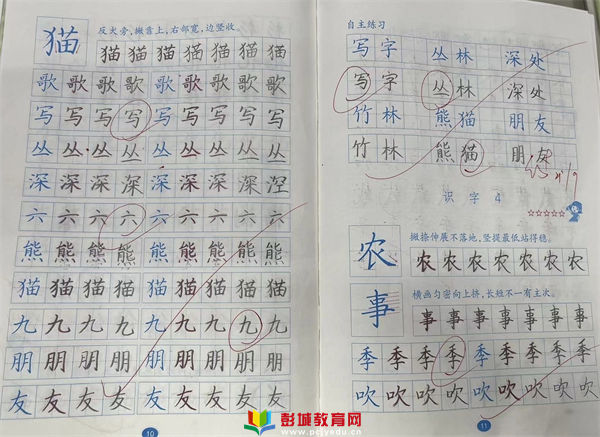 猫 反犬旁，撇靠上，右部宽，边竖收。
猫猫猫猫猫猫猫
歌歌歌歌歌歌歌歌歌
写写写写写写写写写
丛丛丛丛丛丛丛丛丛
深深深深深深深深深
六六六六六六六六六
熊熊熊熊熊熊熊熊熊
猫猫猫猫猫猫猫猫猫
九九九九九九九九九
朋朋朋朋朋朋朋朋朋
友友友友友友友友友
10
自主练习
写字 丛林 深处
写字 丛林 深处
竹林 熊猫 朋友
竹林 熊猫 朋友
识字 4
农 撇捺伸展不落地，竖提最低站得稳。
农农农农农农农
事 横画匀密向上挤，长短不一有主次。
事事事事事事事
季季季季季季季季
吹吹吹吹吹吹吹吹
11
彭城教育网
www.pcjyedu.cn